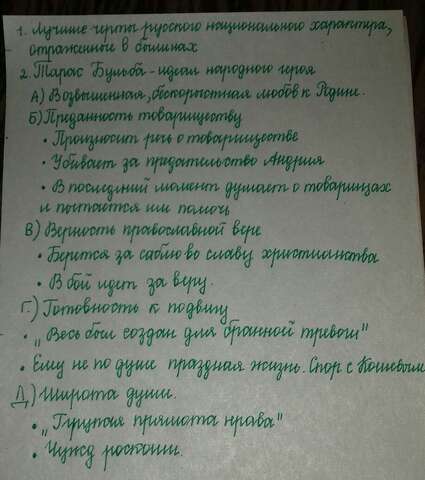 1. Лучшие черты русского национального характера,
отраженные в былинах
2. Тарас Бульба - идеал народного героя
А) Возвышенная, бескорыстная любовь к Родине.
Б) Преданность товариществу
• Произносит речь о товариществе
• Убивает за предательство Андрия
• В последний момент думает о товарищах
и пытается им помочь
В) Верность православной вере
• Берется за саблю во славу христианства
• В бой идет за веру.
Г.) Готовность к подвигу
• „Весь был создан для бранной тревоги"
• Ему не по душе праздная жизнь. Спор с Кошевым
Д) Широта души.
• „Грубая прямота нрава"
• Чужд роскоши.